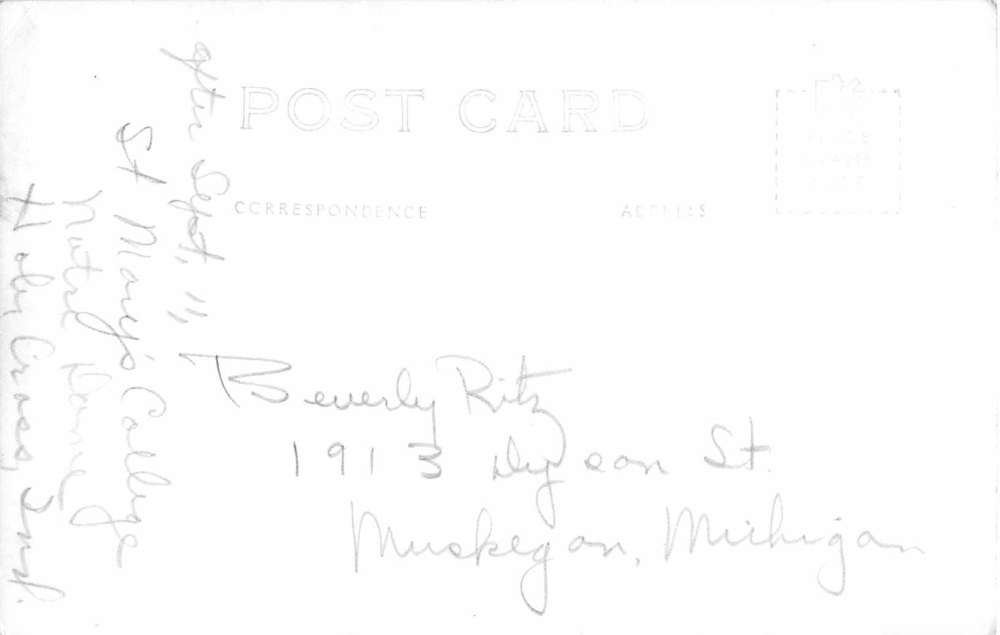 POST CARD
CORRESPONDENCE
ADDRESS
PLACE
STAMP
HERE
after Sept. 11,
St Mary's College
Notre Dame
Holy Cross, Ind.
Beverly Ritz
1913 Dyson St.
Muskegon, Michigan